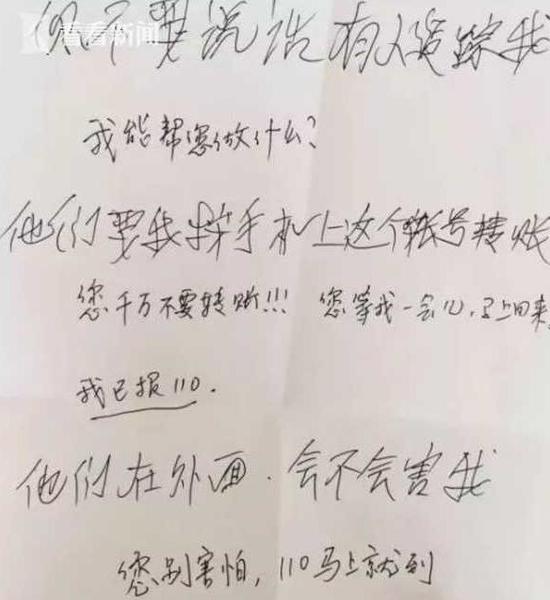 看看新闻
你不要说话有人跟踪我
我能帮您做什么?
他们要我按手机上这个账号转账
您千万不要转账!!! 您等我一会儿,马上回来
我已报110.
他们在外面.会不会害我
您别害怕,110马上就到